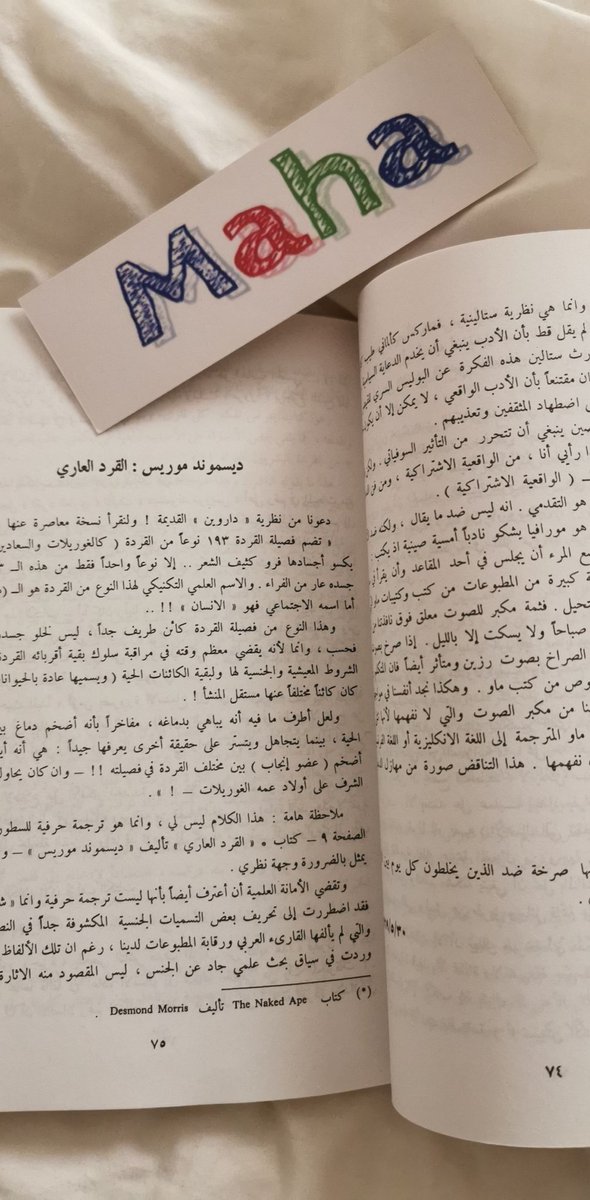 Maha
وانما هي نظرية ستالينية ، فماركس كألماني طيب
لم يقل قط بأن الأدب ينبغي أن يخدم الدعاية السياسية
رث ستالين هذه الفكرة عن البوليس السري
ان مقتنعاً بأن الأدب الواقعي ، لا يمكن إلا أن يكون
ى اضطهاد المثقفين وتعذيبهم .
صين ينبغي أن تتحرر من التأثير السوفياتي . ولكن
ا رأيي أنا ، من الواقعية الاشتراكية ، ومن
ــ ( الواقعية الاشتراكية ) .
هو التقدمي . انه ليس ضد ما يقال ، ولكنه ضد
هو مورافيا يشكو نادباً أمسية صينية اذ يكتب :
ع المرء أن يجلس في أحد المقاعد وأن يقرأ في
ة كبيرة من المطبوعات من كتب وكتيبات ماو
تحيل . فثمة مكبر للصوت معلق فوق نافذتنا
صباحاً ولا يسكت إلا بالليل . إذا صرخ بصوت
الصراخ بصوت رزين ومتأثر أيضاً فان
وص من كتب ماو . وهكذا نجد أنفسنا في
نا من مكبر الصوت والتي لا نفهمها لأنها
ماو المترجمة إلى اللغة الانكليزية أو اللغة
ن نفهمها . هذا التناقض صورة من مهازل
ها صرخة ضد الذين يخلطون كل يوم بين
/٥/٣٠
٧٤
ديسموند موريس : القرد العاري
دعونا من نظرية « داروين » القديمة ! ولنقرأ نسخة معاصرة عنها
« تضم فصيلة القردة ١٩٣ نوعاً من القردة ( كالغوريلات والسعادين
يكسو أجسادها فرو كثيف الشعر .. إلا نوعاً واحداً فقط من هذه الـ
جسده عار من الفراء . والاسم العلمي التكنيكي لهذا النوع من القردة هو الـ
أما اسمه الاجتماعي فهو « الانسان » !! ..
وهذا النوع من فصيلة القردة كائن طريف جداً ، ليس لخلو جسده
فحسب ، وانما لأنه يقضي معظم وقته في مراقبة سلوك بقية أقربائه القردة
الشروط المعيشية والجنسية لها ولبقية الكائنات الحية ( ويسميها عادة بالحيوانات
كان كائناً مختلفاً عنها مستقل المنشأ !
ولعل أطرف ما فيه أنه يباهي بدماغه ، مفاخراً بأنه أضخم دماغ بين
الحية ، بينما يتجاهل ويتستّر على حقيقة أخرى يعرفها جيداً : هي أنه أيضاً
أضخم ( عضو إنجاب ) بين مختلف القردة في فصيلته !! ــ وان كان يحاول
الشرف على أولاد عمه الغوريلات ــ ! » .
ملاحظة هامة : هذا الكلام ليس لي ، وانما هو ترجمة حرفية للسطور
الصفحة ٩ ــ كتاب * « القرد العاري » تأليف « ديسموند موريس » ــ و
يمثل بالضرورة وجهة نظري .
وتقضي الأمانة العلمية أن أعترف أيضاً بأنها ليست ترجمة حرفية وانما «
فقد اضطررت إلى تحريف بعض التسميات الجنسية المكشوفة جداً في النص
والتي لم يألفها القارىء العربي ورقابة المطبوعات لدينا ، رغم ان تلك الألفاظ
وردت في سياق بحث علمي جاد عن الجنس ، ليس المقصود منه الاثارة
(*) كتاب The Naked Ape تأليف Desmond Morris .
٧٥